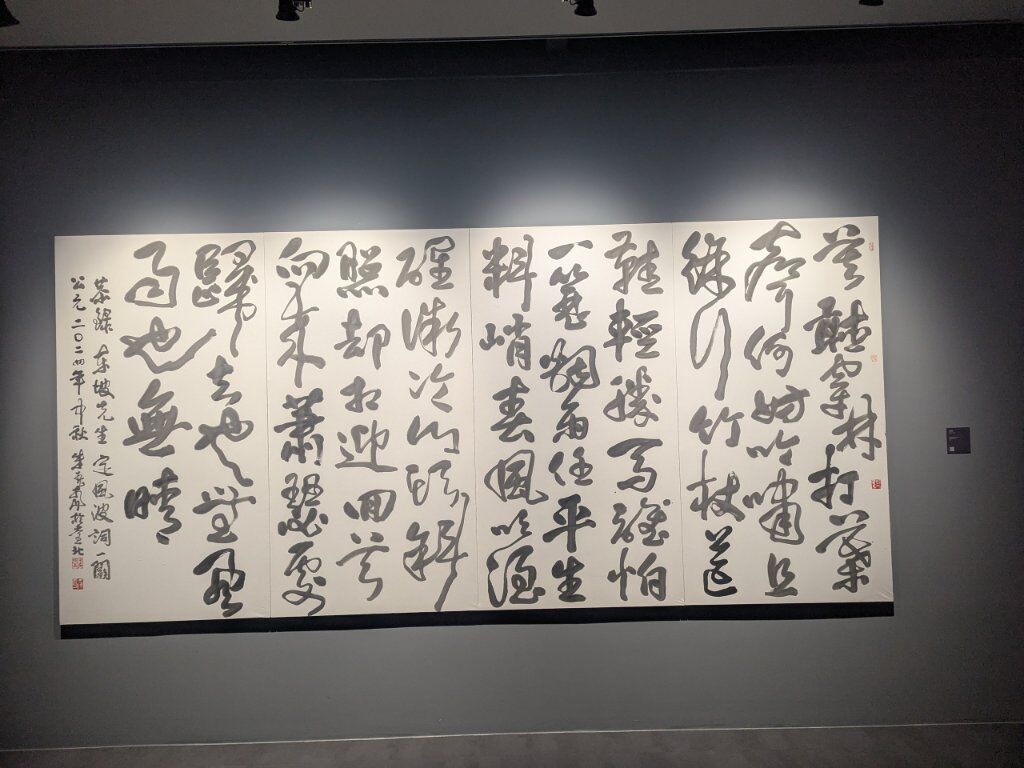 莫聽穿林打葉
聲何妨吟嘯且
徐行竹杖芒
鞋輕勝馬誰怕
一蓑烟雨任平生
料峭春風吹酒
醒微冷山頭斜
照却相迎回首
向來蕭瑟處
歸去也無風
雨也無晴
恭錄東坡先生定風波詞一闋
公元二〇二四年中秋朱於臺北